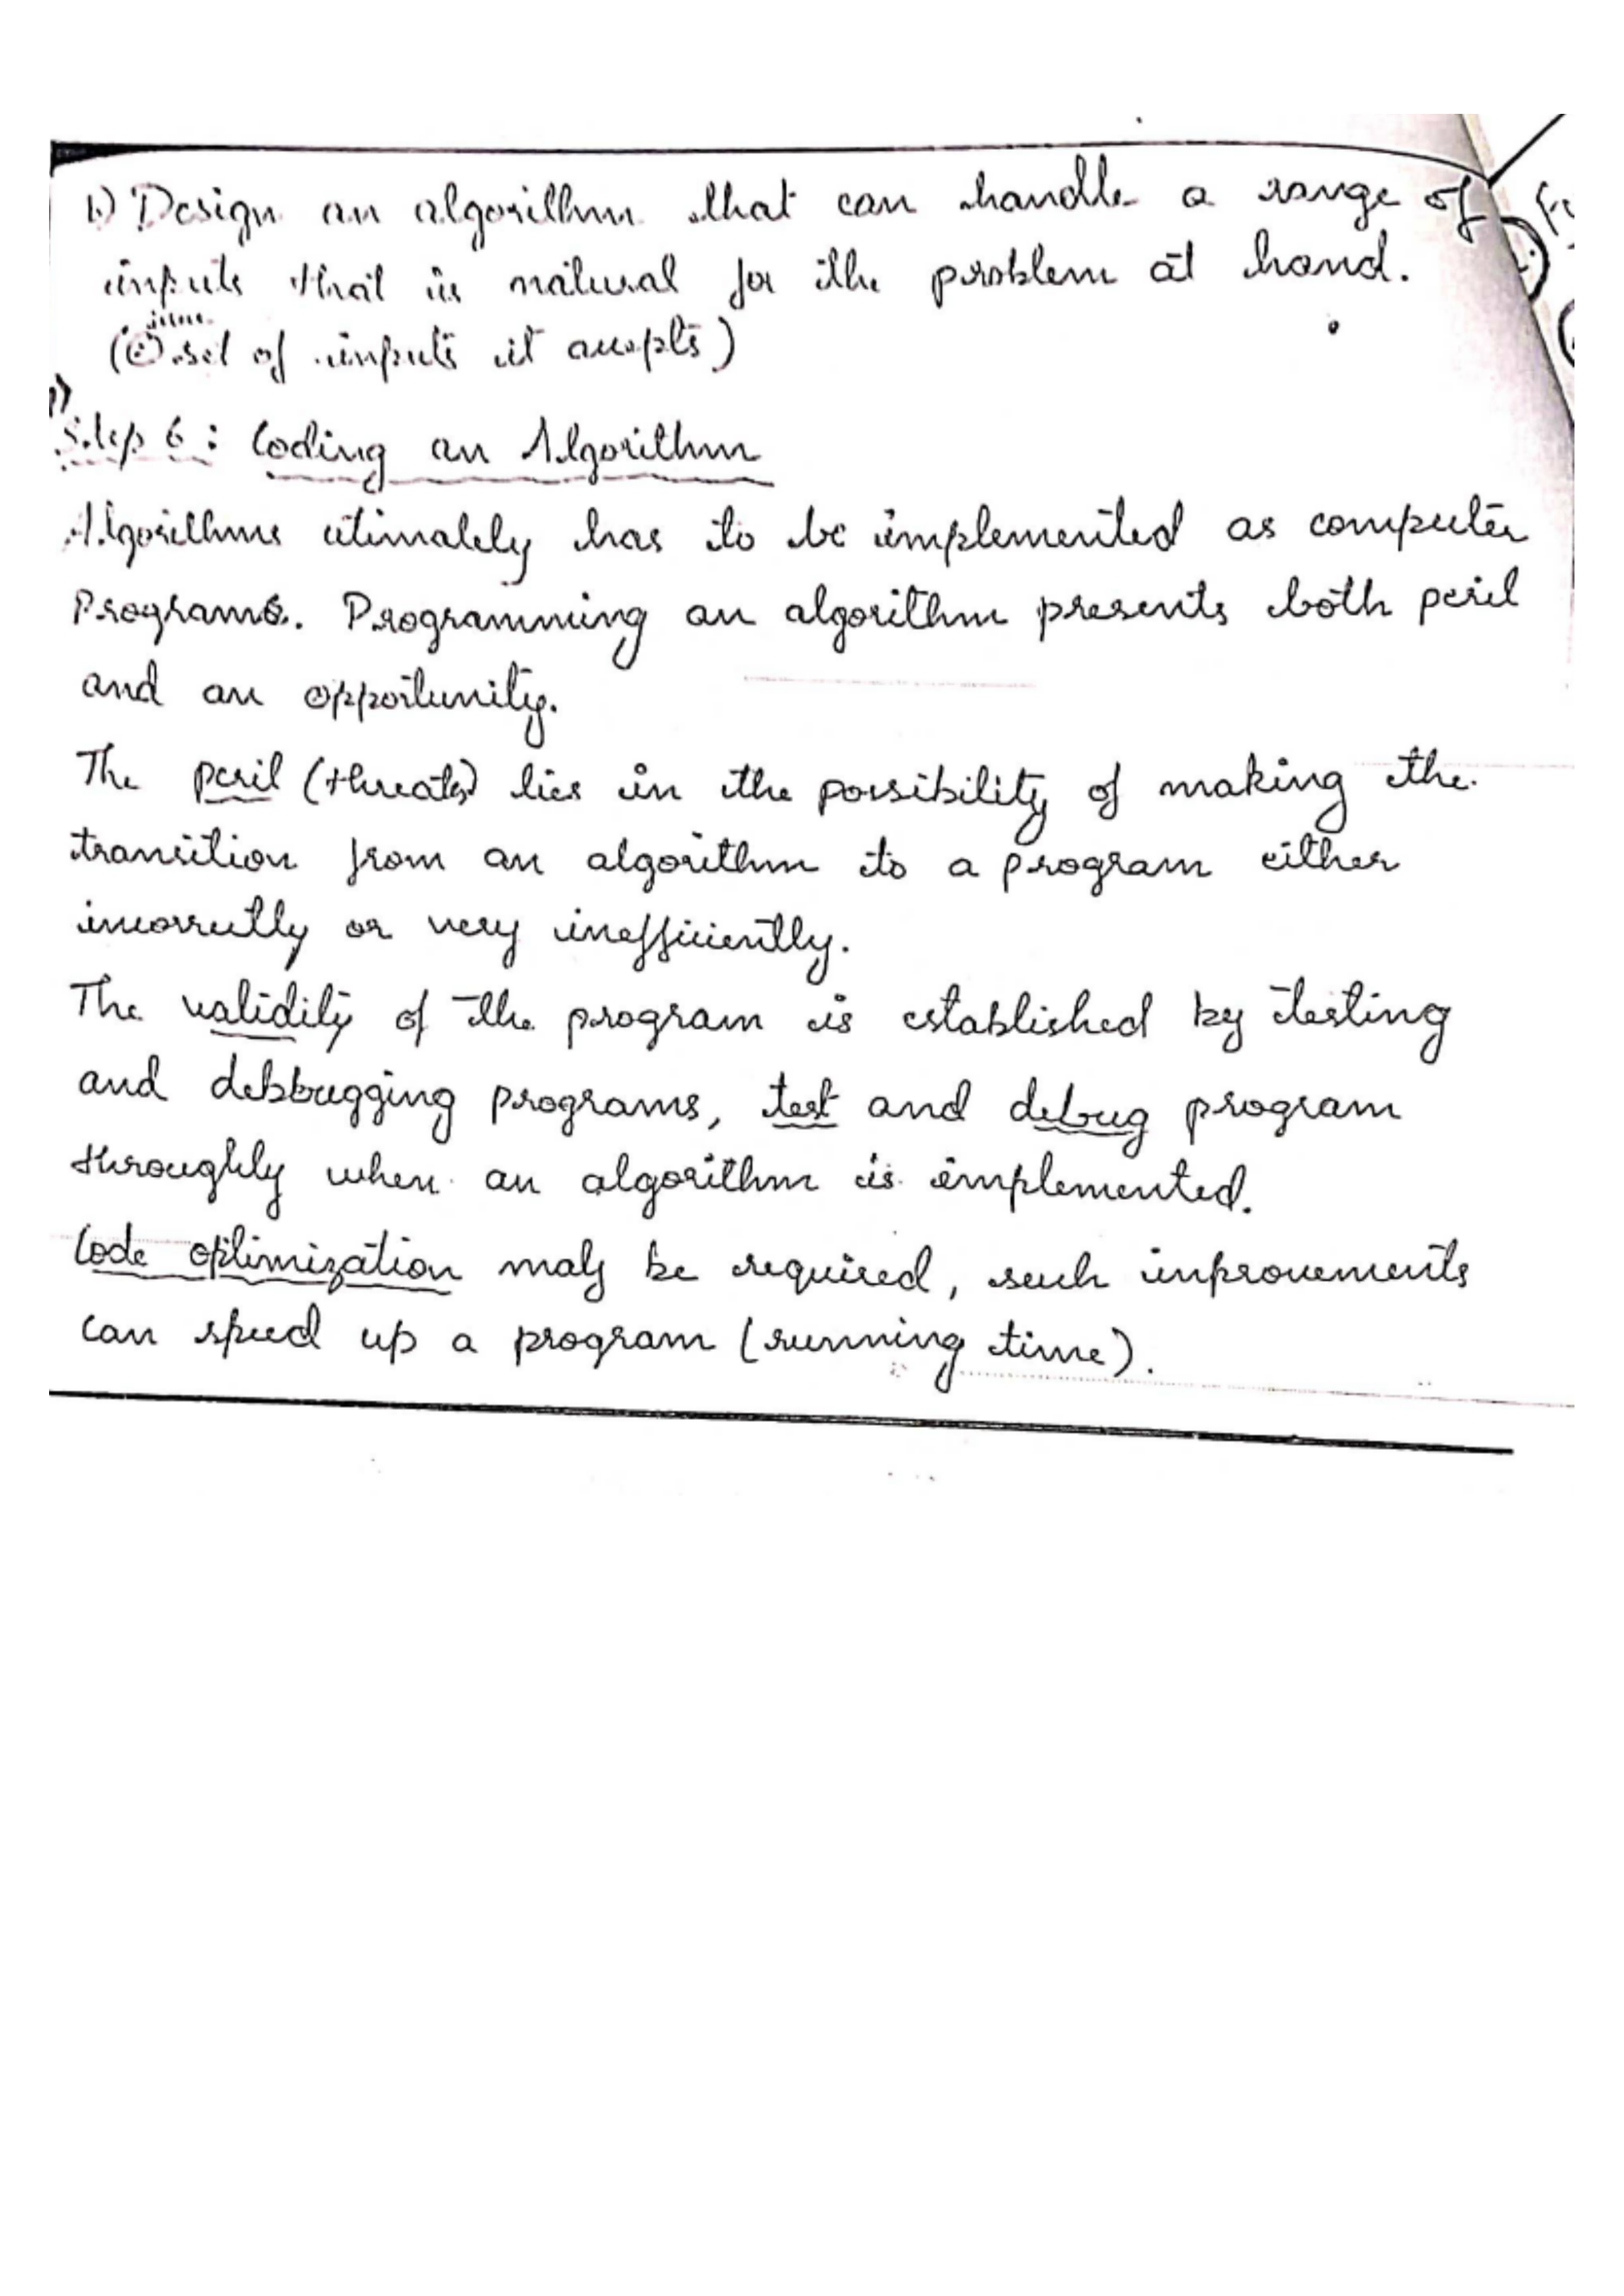 1.) Design an algorithm that can handle a range of
inputs that is natural for the problem at hand.
(set of inputs it accepts)
Step 6 : Coding an Algorithm
Algorithms utimately has to be implemented as computer
Programs. Programming an algorithm presents both peril
and an opportunity.
The peril (threats) lies in the possibility of making the
transition from an algorithm to a program either
incorrectly or very inefficiently.
The validity of the program is established by testing
and debbugging programs, test and debug program
throughly when an algorithm is implemented.
Code optimization may be required, such inprovements
can speed up a program (running time).